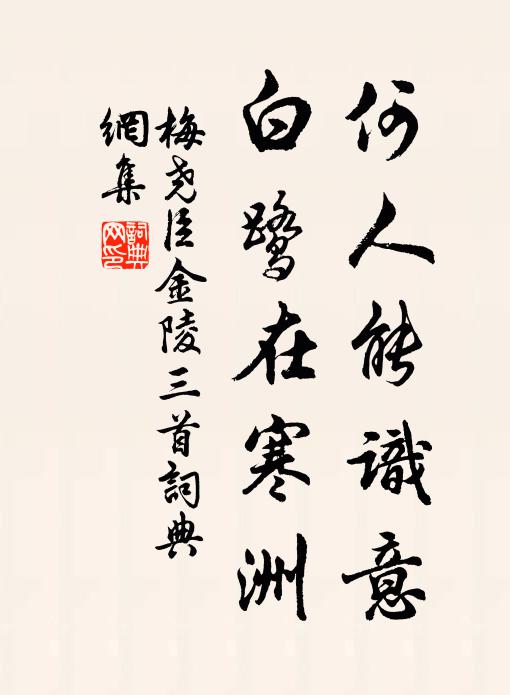 何人能識意
白鷺在寒洲
梅尧臣金陵三首詞典
網集
詞典
网印